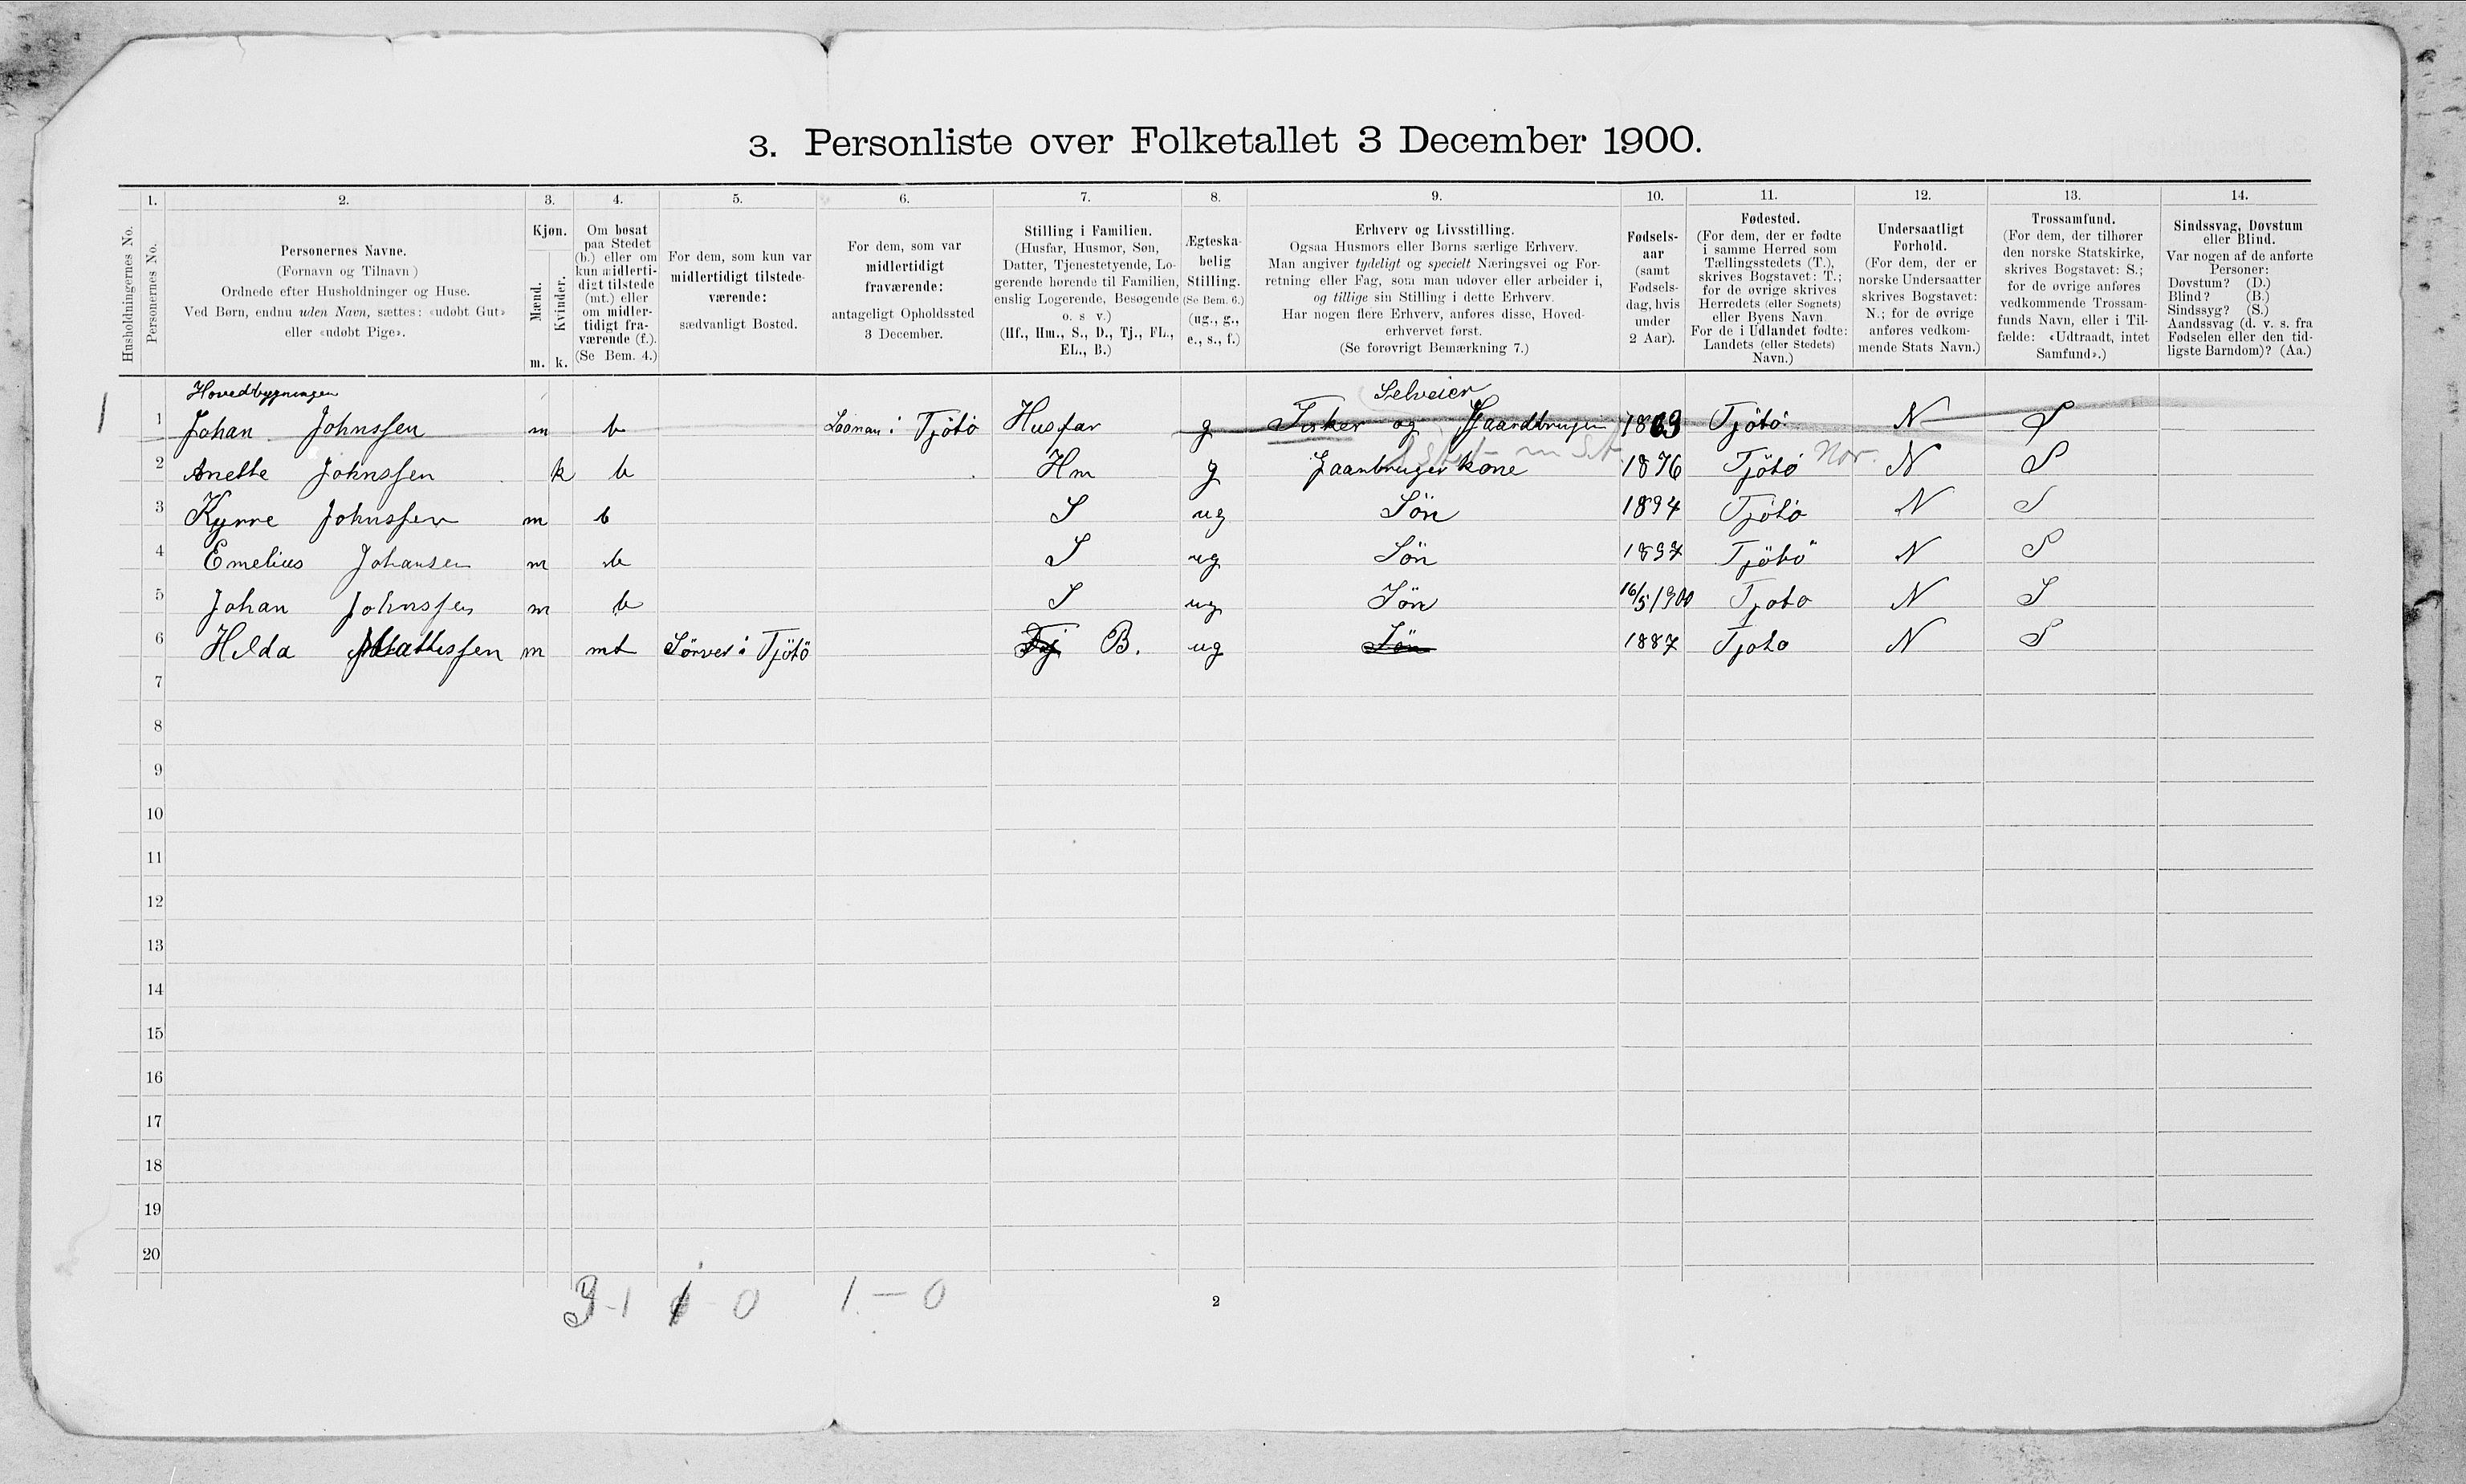 3. Personliste over Folketallet 3 December 1900.
1. 2. 3. 4. 5. 6. 7. 8. 9. 10. 11. 12. 13. 14.
Husholdningernes No.
Personernes No.
Personernes Navne.
(Fornavn og Tilnavn)
Ordnede efter Husholdninger og Huse.
Ved Børn, endnu uden Navn, sættes: «udøbt Gut»
eller «udøbt Pige».
Kjøn.
Mænd.
Kvinder.
m. k.
Om bosat
paa Stedet
(b.) eller om
kun midlerti-
digt tilstede
(mt.) eller
om midler-
tidigt fra-
værende (f.).
(Se Bem. 4.)
For dem, som kun var
midlertidigt tilstede-
værende:
sædvanligt Bosted.
For dem, som var
midlertidigt
fraværende:
antageligt Opholdssted
3 December.
Stilling i Familien.
(Husfar, Husmor, Søn,
Datter, Tjenestetyende, Lo-
gerende hørende til Familien,
enslig Logerende, Besøgende
o. s v.)
(Hf., Hm., S., D., Tj., FL.,
EL., B.)
Ægteska-
belig
Stilling.
(Se Bem. 6.)
(ug., g.,
e., s., f.)
Erhverv og Livsstilling.
Ogsaa Husmors eller Børns særlige Erhverv.
Man angiver tydeligt og specielt Næringsvei og For-
retning eller Fag, som man udøver eller arbeider i,
og tillige sin Stilling i dette Erhverv.
Har nogen flere Erhverv, anføres disse, Hoved-
erhvervet først.
(Se forøvrigt Bemærkning 7.)
Fødsels-
aar
(samt
Fødsels-
dag, hvis
under
2 Aar).
Fødested.
(For dem, der er fødte
i samme Herred som
Tællingsstedets (T.),
skrives Bogstavet: T.;
for de øvrige skrives
Herredets (eller Sognets)
eller Byens Navn.
For de i Udlandet fødte:
Landets (eller Stedets)
Navn.)
Undersaatligt
Forhold.
(For dem, der er
norske Undersaatter
skrives Bogstavet:
N.; for de øvrige
anføres vedkom-
mende Stats Navn.)
Trossamfund.
(For dem, der tilhører
den norske Statskirke,
skrives Bogstavet: S.;
for de øvrige anføres
vedkommende Trossam-
funds Navn, eller i Til-
fælde: «Udtraadt, intet
Samfund».)
Sindssvag, Døvstum
eller Blind.
Var nogen af de anførte
Personer:
Døvstum? (D.)
Blind? (B.)
Sindssyg? (S.)
Aandssvag (d. v. s. fra
Fødselen eller den tid-
ligste Barndom)? (Aa.)
Hovedbygningen Selveier
1 1 Johan Johnssen m b i Tjötö Husfar g Fisker og Gaardbruger 1869 Tjötö N S
2 Anette Johnssen k b Hm g Jaanbruger kone 1876 Tjötö Nor. N S
3 Kyrre Johnssen m b S ug Sön 1894 Tjötö N S
4 Emelius Johansen m b S ug Sön 1897 Tjötö N S
5 Johan Johnssen m b S ug Sön 16/5 1900 Tjoto N S
6 Hilda Mattissen m mt Sörvei i Tjötö Tj B. ug Sön 1887 Tjoto N S
7
8
9
10
11
12
13
14
15
16
17
18
19
20
3-1 1 0 1.-0
2